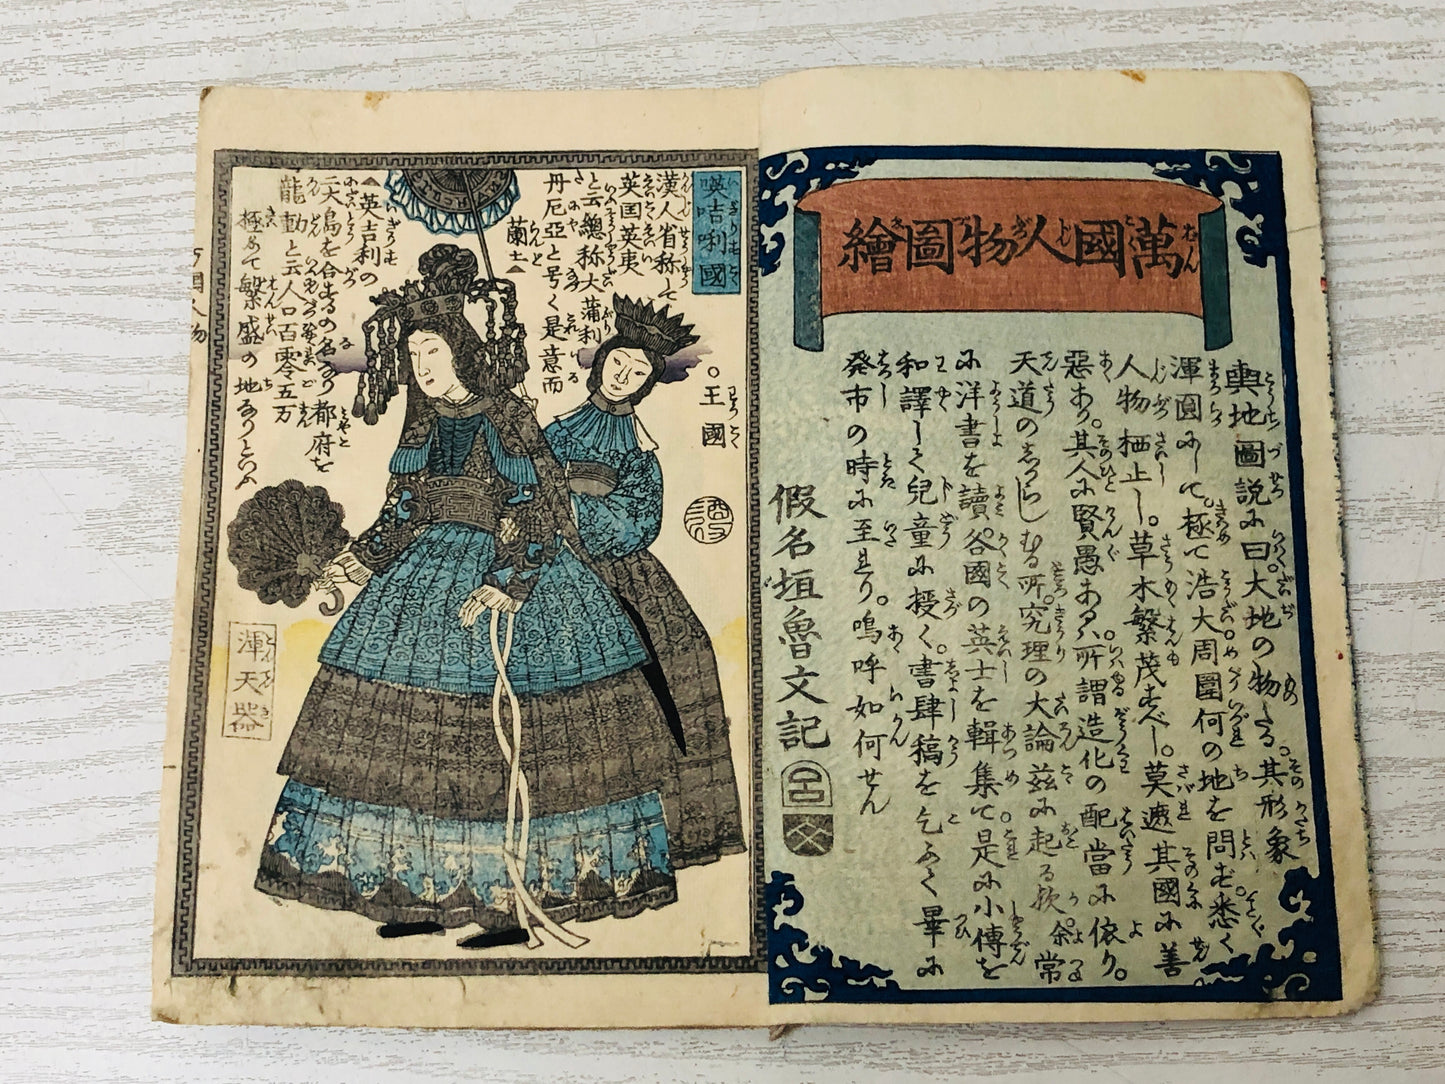 萬國人物圖繪
輿地圖説に曰。大地の物たる。其形象
渾圓にして。極て浩大周圍何の地を問ず。悉く
人物栖止し。草木繁茂すべし。莫遮其國に善
惡あり。其人に賢愚あるハ。所謂造化の配當に依り。
天道のしからしむる所。究理の大論茲に起る歟。余常
に洋書を讀。各國の英士を輯集て。是に小傳を
和譯して兒童に授く。書肆稿を乞ふて畢に
発市の時に至れり。嗚呼如何せん
假名垣魯文記
呂
文
暎咭唎國
漢人省称して
英国英夷
と云総称大蒲利
丹尼亞と号く是意而
蘭士
英吉利の
二大島を合するの名なり都府を
龍動と云人口百零五万
極めて繁盛の地なりといふ
王國
渾天器
万國人物